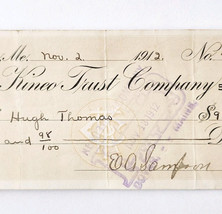 Me. Nov. 2 1912. No.
Kineo Trust Company
Hugh Thomas $9
and 98/100 D